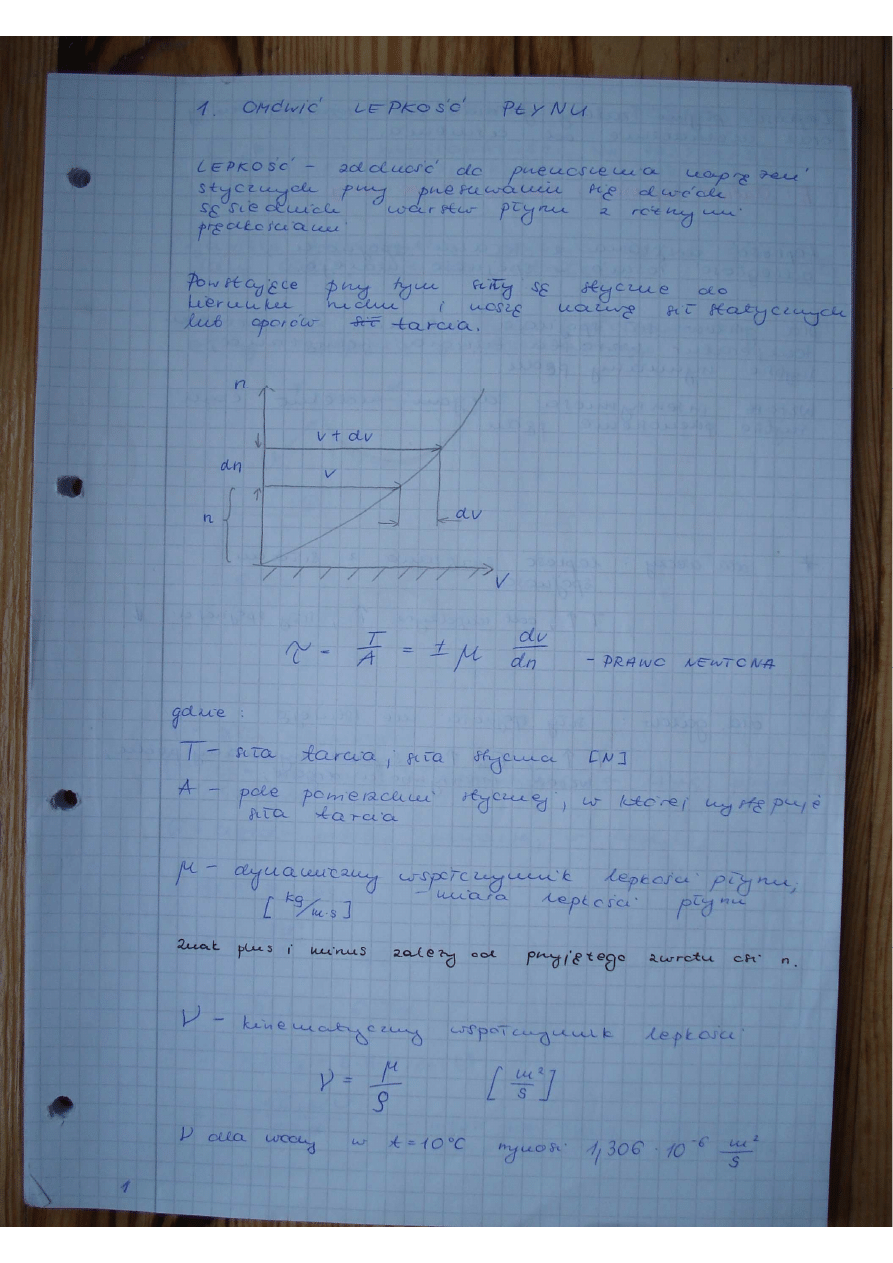 1. OMÓWIĆ LEPKOŚĆ PŁYNU
LEPKOŚĆ – zdolność do przenoszenia naprężeń
stycznych przy przesuwaniu się dwóch
sąsiednich warstw płynu z różnymi
prędkościami
Powstające przy tym siły są styczne do
kierunku ruchu i noszą nazwę sił statycznych
lub oporów tarcia.
n
v + dv
dn
v
n
dv
V
τ – T/A = ± μ dv/dn – PRAWO NEWTONA
gdzie :
T – siła tarcia, siła styczna [N]
A – pole powierzchni stycznej, w której występuje
siła tarcia
μ – dynamiczny współczynnik lepkości płynu,
[kg/m·s] – miara lepkości płynu
znak plus i minus zależy od przyjętego zwrotu osi n.
ν – kinematyczny współczynnik lepkości
ν = μ/ρ [m²/s]
ν dla wody w t = 10°C wynosi 1,306 · 10⁻⁶ m²/s
1